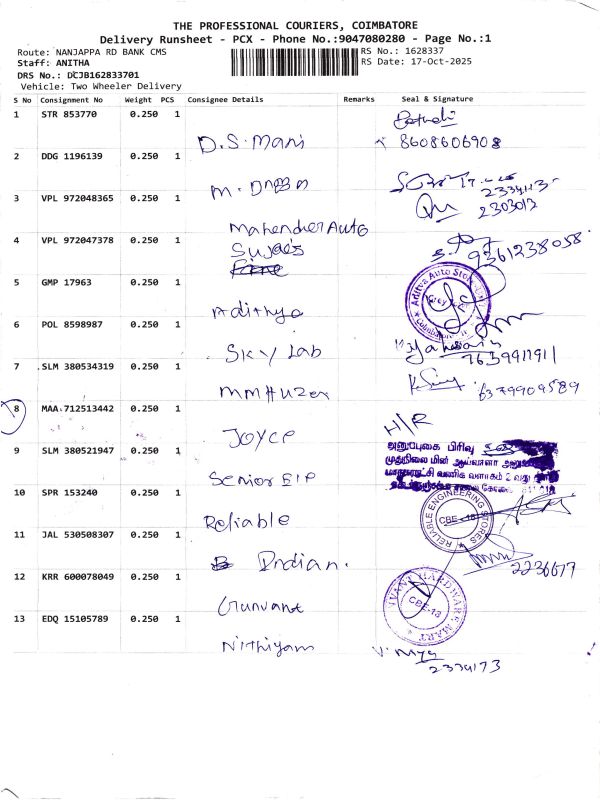 THE PROFESSIONAL COURIERS, COIMBATORE
Delivery Runsheet - PCX - Phone No.:9047080280 - Page No.:1
Route: NANJAPPA RD BANK CMS
RS No.: 1628337
Staff: ANITHA
RS Date: 17-Oct-2025
DRS No.: DCJB162833701
Vehicle: Two Wheeler Delivery
S No Consignment No Weight PCS Consignee Details Remarks Seal & Signature
1 STR 853770 0.250 1
D.S. Mani 8608606908
2 DDG 1196139 0.250 1
M.
2303017
3 VPL 972048365 0.250 1
Mahender Auto
4 VPL 972047378 0.250 1
9361238058
5 GMP 17963 0.250 1
Adithya
Aditya Auto Stores
6 POL 8598987 0.250 1
SKY Lab
7639911911
7 SLM 380534319 0.250 1
8 MAA 712513442 0.250 1
JOYCE
H/R
9 SLM 380521947 0.250 1
Senior
அனுப்புகை பிரிவு
10 SPR 153240 0.250 1
Reliable
RELIABLE ENGINEERING STORES
CBE - 18
11 JAL 530508307 0.250 1
Indian.
2236677
12 KRR 600078049 0.250 1
Gunvant
HARDWARE MART
CBE-18
13 EDQ 15105789 0.250 1
Nithiyam
2334173